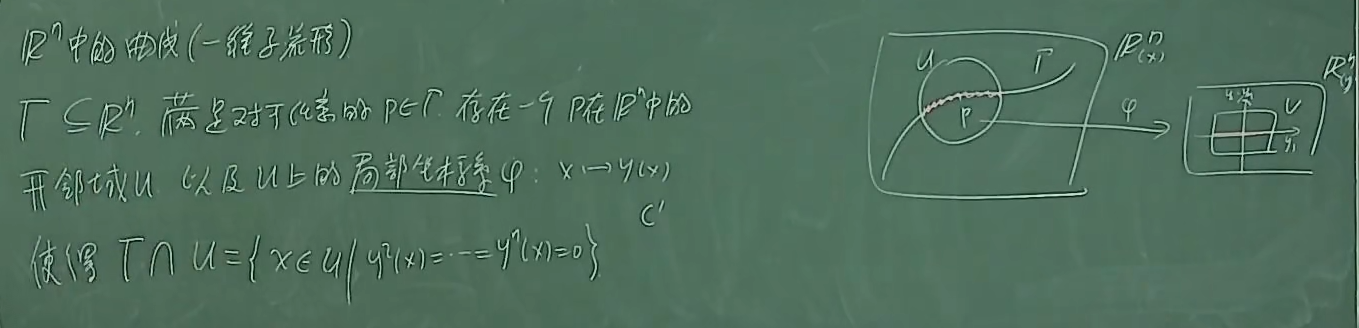 ℝⁿ中的曲线(一维子流形)
Γ ⊆ ℝⁿ, 满足对于任意的 p∈Γ, 存在一个 p 在 ℝⁿ 中的
开邻域 U 以及 U 上的局部坐标系 φ: x ↦ y(x)
C¹
使得 Γ ∩ U = { x ∈ U | y²(x) = ⋯ = yⁿ(x) = 0 }
U Γ ℝⁿ(x)
p
φ
ℝⁿ(y)
V
y₁